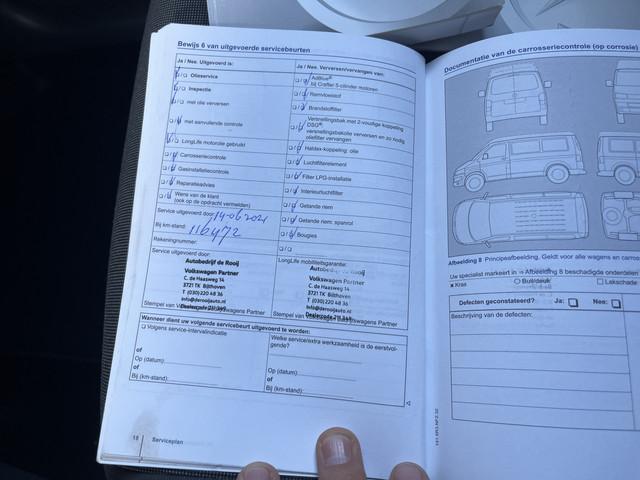 Bewijs 6 van uitgevoerde servicebeurten
Ja / Nee. Uitgevoerd is:
Olieservice
Inspectie
met olie verversen
met aanvullende controle
LongLife motorolie gebruikt
Carrosseriecontrole
Gasinstallatiecontrole
Reparatieadvies
Wens van de klant
(ook op de opdracht vermelden)
Service uitgevoerd door: 14-06-2021
Bij km-stand: 116472
Rekeningnummer:
Ja / Nee. Verversen/vervangen van:
AdBlue®
bij Crafter 5-cilinder motoren
Remvloeistof
Brandstoffilter
Versnellingsbak met 2-voudige koppeling
DSG®:
versnellingsbakolie verversen en zo nodig
oliefilter vervangen
Haldex-koppeling: olie
Luchtfilterelement
Filter LPG-installatie
Interieurluchtfilter
Getande riem
Getande riem: spanrol
Bougies
Service uitgevoerd door:
Autobedrijf de Rooij
Volkswagen Partner
C. de Haasweg 14
3721 TK Bilthoven
T (030) 220 48 36
info@derooijauto.nl
LongLife mobiliteitsgarantie:
Autobedrijf de Rooij
Volkswagen Partner
C. de Haasweg 14
3721 TK Bilthoven
T (030) 220 48 36
info@derooijauto.nl
Wanneer dient uw volgende servicebeurt uitgevoerd te worden:
Volgens service-intervalindicatie
of
Op (datum):
of
Bij (km-stand):
Welke service/extra werkzaamheid is de eerstvol-
gende?
Op (datum):
of
Bij (km-stand):
18
Serviceplan
Documentatie van de carrosseriecontrole (op corrosie)
Afbeelding 8 Principeafbeelding. Geldt voor alle wagens en carros
Uw specialist markeert in ⇒ Afbeelding 8 beschadigde onderdelen
x Kras
o Buil/deuk
Lakschade
Defecten geconstateerd? Ja: Nee:
Beschrijving van de defecten: